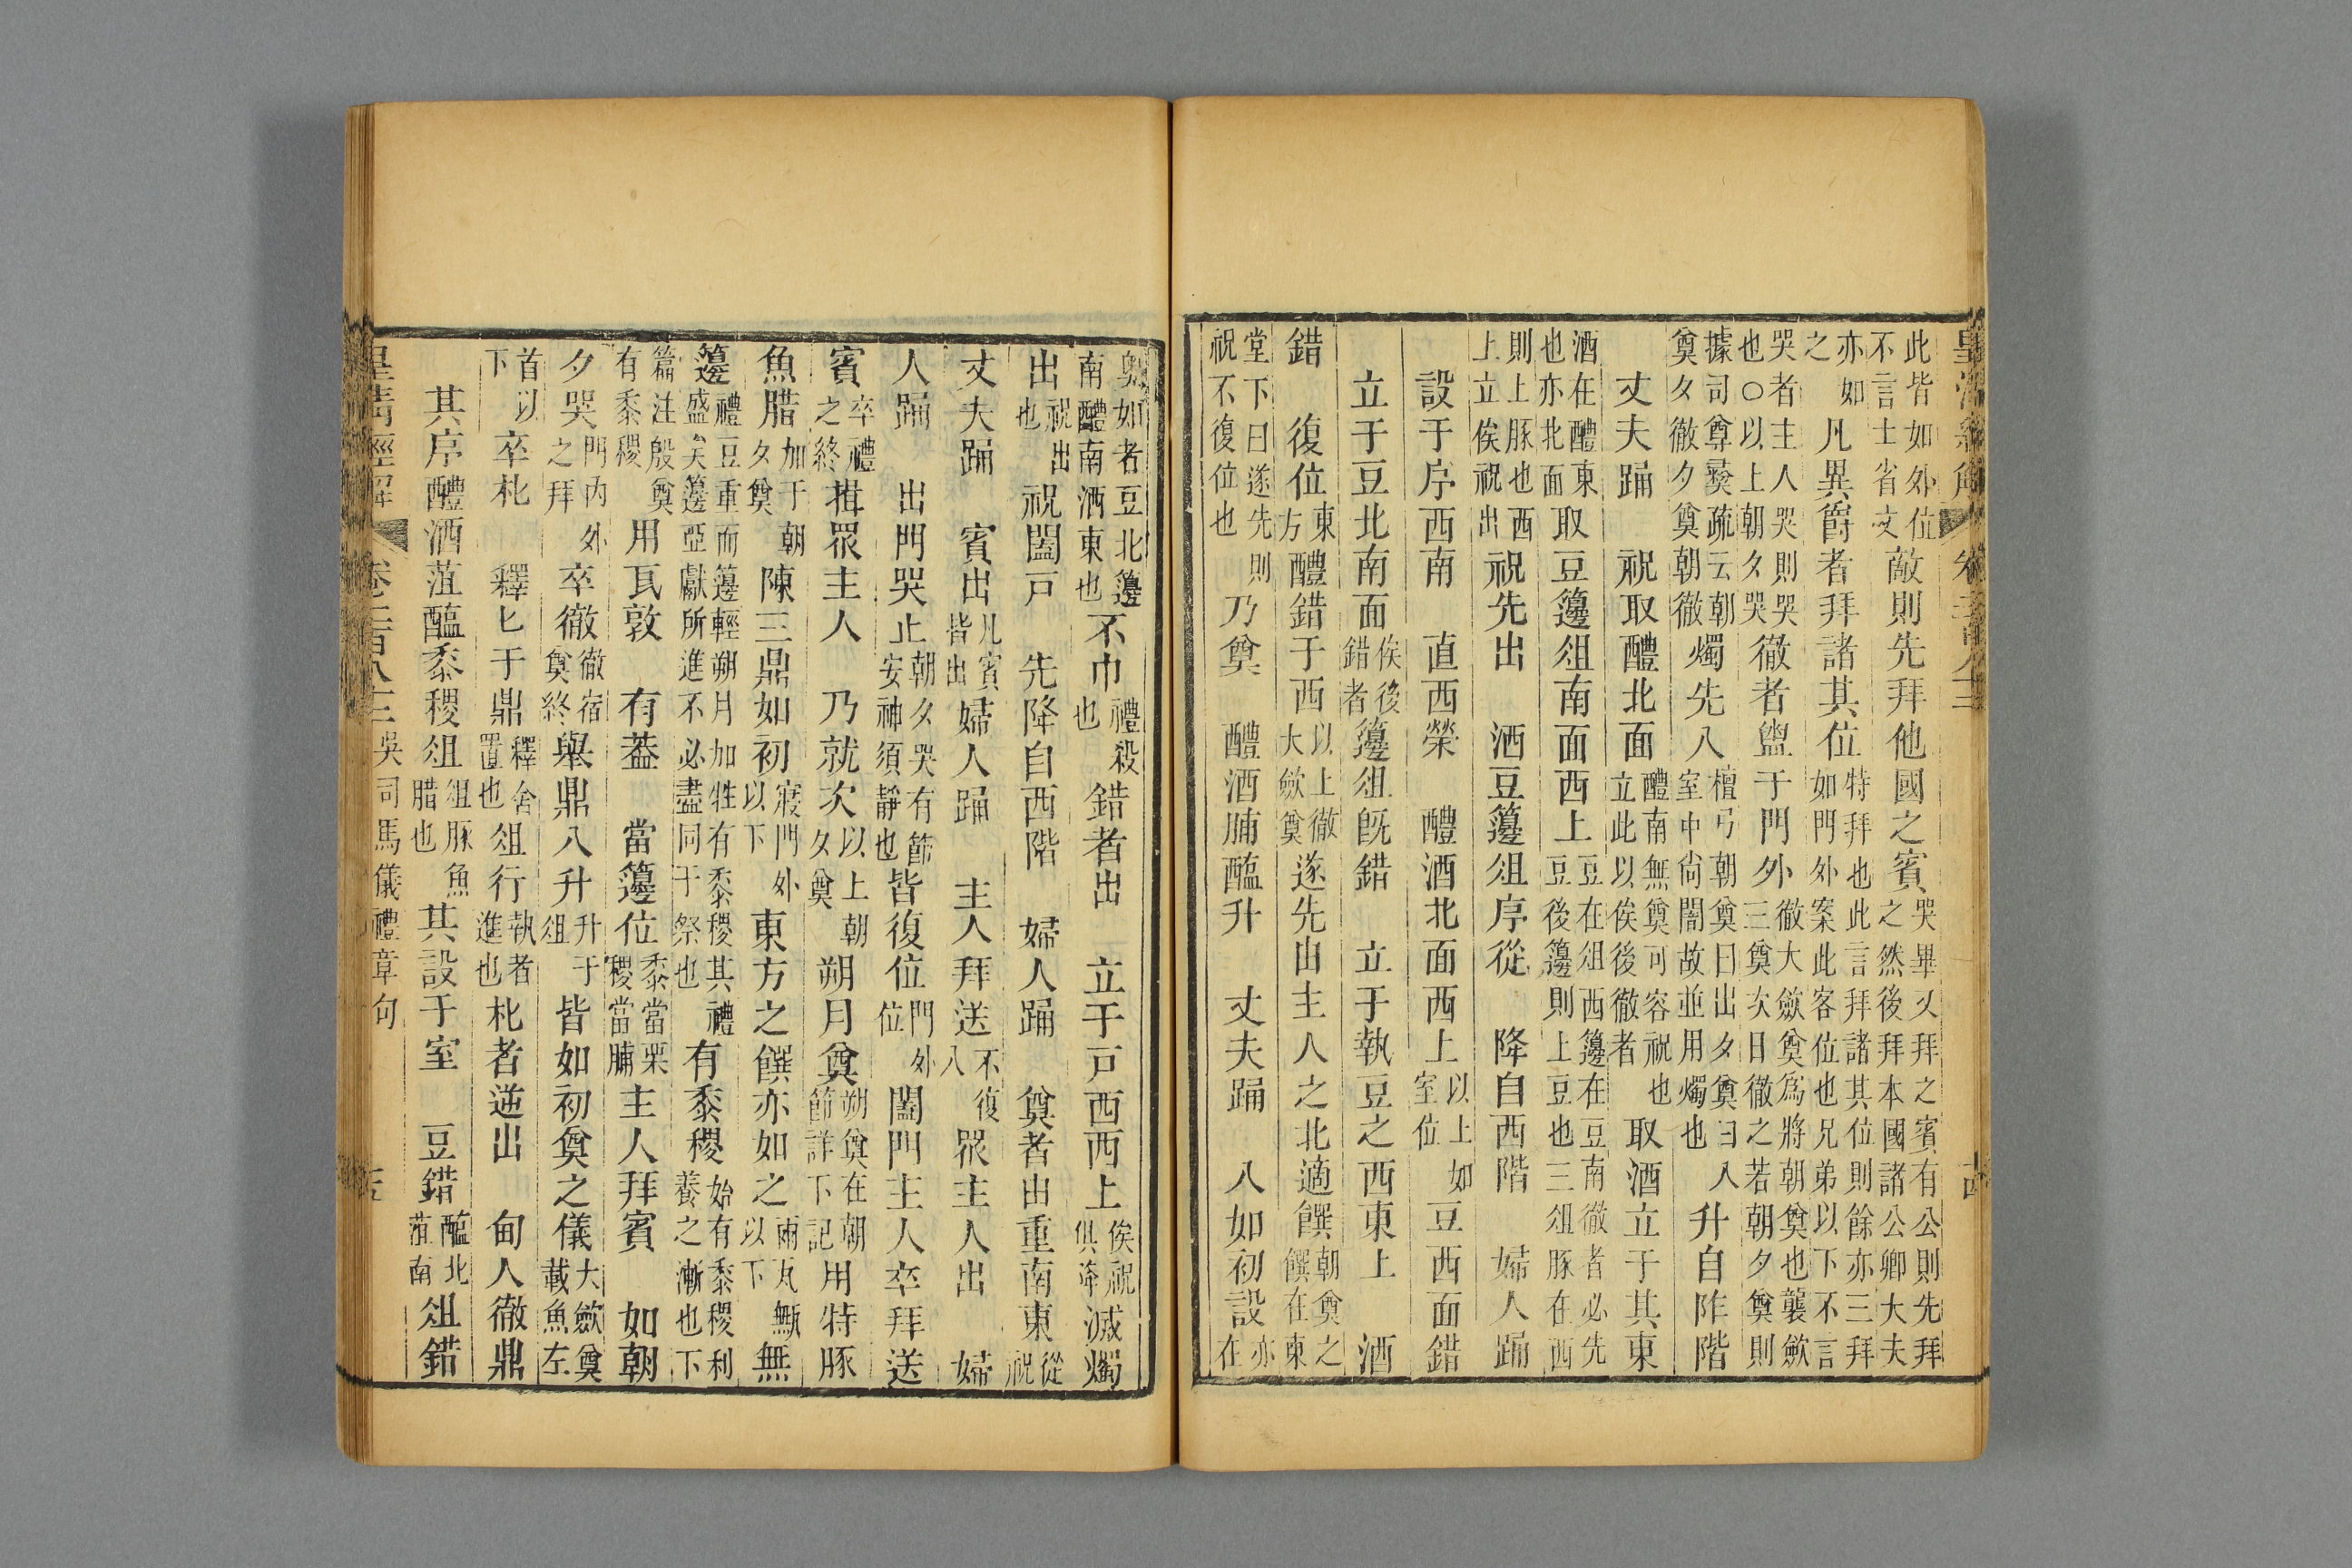 此皆如外位不言士省文敵則先拜他國之賓哭畢乂拜之賓有公則先拜之然後拜本國諸公卿大夫
亦如之凡異爵者拜諸其位特拜也此言拜諸其位則餘亦三拜如門外案此客位也兄弟以下不言
哭者主人哭則哭也○以上朝夕哭徹者盥于門外徹大斂奠爲將朝奠也襲斂三奠次日徹之若朝夕奠則
據司尊彝疏云朝奠夕徹夕奠朝徹燭先入檀弓朝奠日出夕奠日入室中尚闇故並用燭也升自阼階
丈夫踊 祝取醴北面醴南無奠可容祝也立此以俟後徹者取酒立于其東
酒在醴東也亦北面取豆籩俎南面西上豆在俎西籩在豆南徹者必先豆後籩則上豆也三俎豚在西
則上豚也西上立俟祝出祝先出 酒豆籩俎序從 降自西階 婦人踊
設于序西南 直西榮 醴酒北面西上以上如室位豆西面錯
立于豆北南面俟後錯者籩俎旣錯 立于執豆之西東上 酒
錯 復位東方醴錯于西以上徹大斂奠遂先由主人之北適饌朝奠之饌在東
堂下曰遂先則祝不復位也乃奠 醴酒脯醢升 丈夫踊 入如初設亦在
奧如者豆北籩南醴南酒東也不巾禮殺也錯者出 立于戸西西上俟祝俱降滅燭
出祝出也祝闔戸 先降自西階 婦人踊 奠者由重南東從祝
丈夫踊 賓出凡賓皆出婦人踊 主人拜送不復入眾主人出 婦
人踊 出門哭止朝夕哭有節安神須靜也皆復位門外位闔門主人卒拜送
賓卒禮之終揖眾主人 乃就次以上朝夕奠朔月奠朔奠在朝節詳下記用特豚
魚腊加于朝夕奠陳三鼎如初寢門外以下東方之饌亦如之兩瓦甒以下無
籩禮豆重而籩輕朔月加牲有黍稷其禮盛矣籩亞獻所進不必盡同于祭也有黍稷始有黍稷利養之漸也下
篇注殷奠有黍稷用瓦敦 有葢 當籩位黍當栗稷當脯主人拜賓 如朝
夕哭門內外之拜卒徹徹宿奠終舉鼎入升升于俎皆如初奠之儀大斂奠載魚左
首以下卒朼 釋匕于鼎釋舍置也俎行執者進也朼者逆出 甸人徹鼎
其序醴酒菹醢黍稷俎俎豚魚腊也其設于室 豆錯醢北菹南俎錯
皇清經解 吳司馬儀禮章句